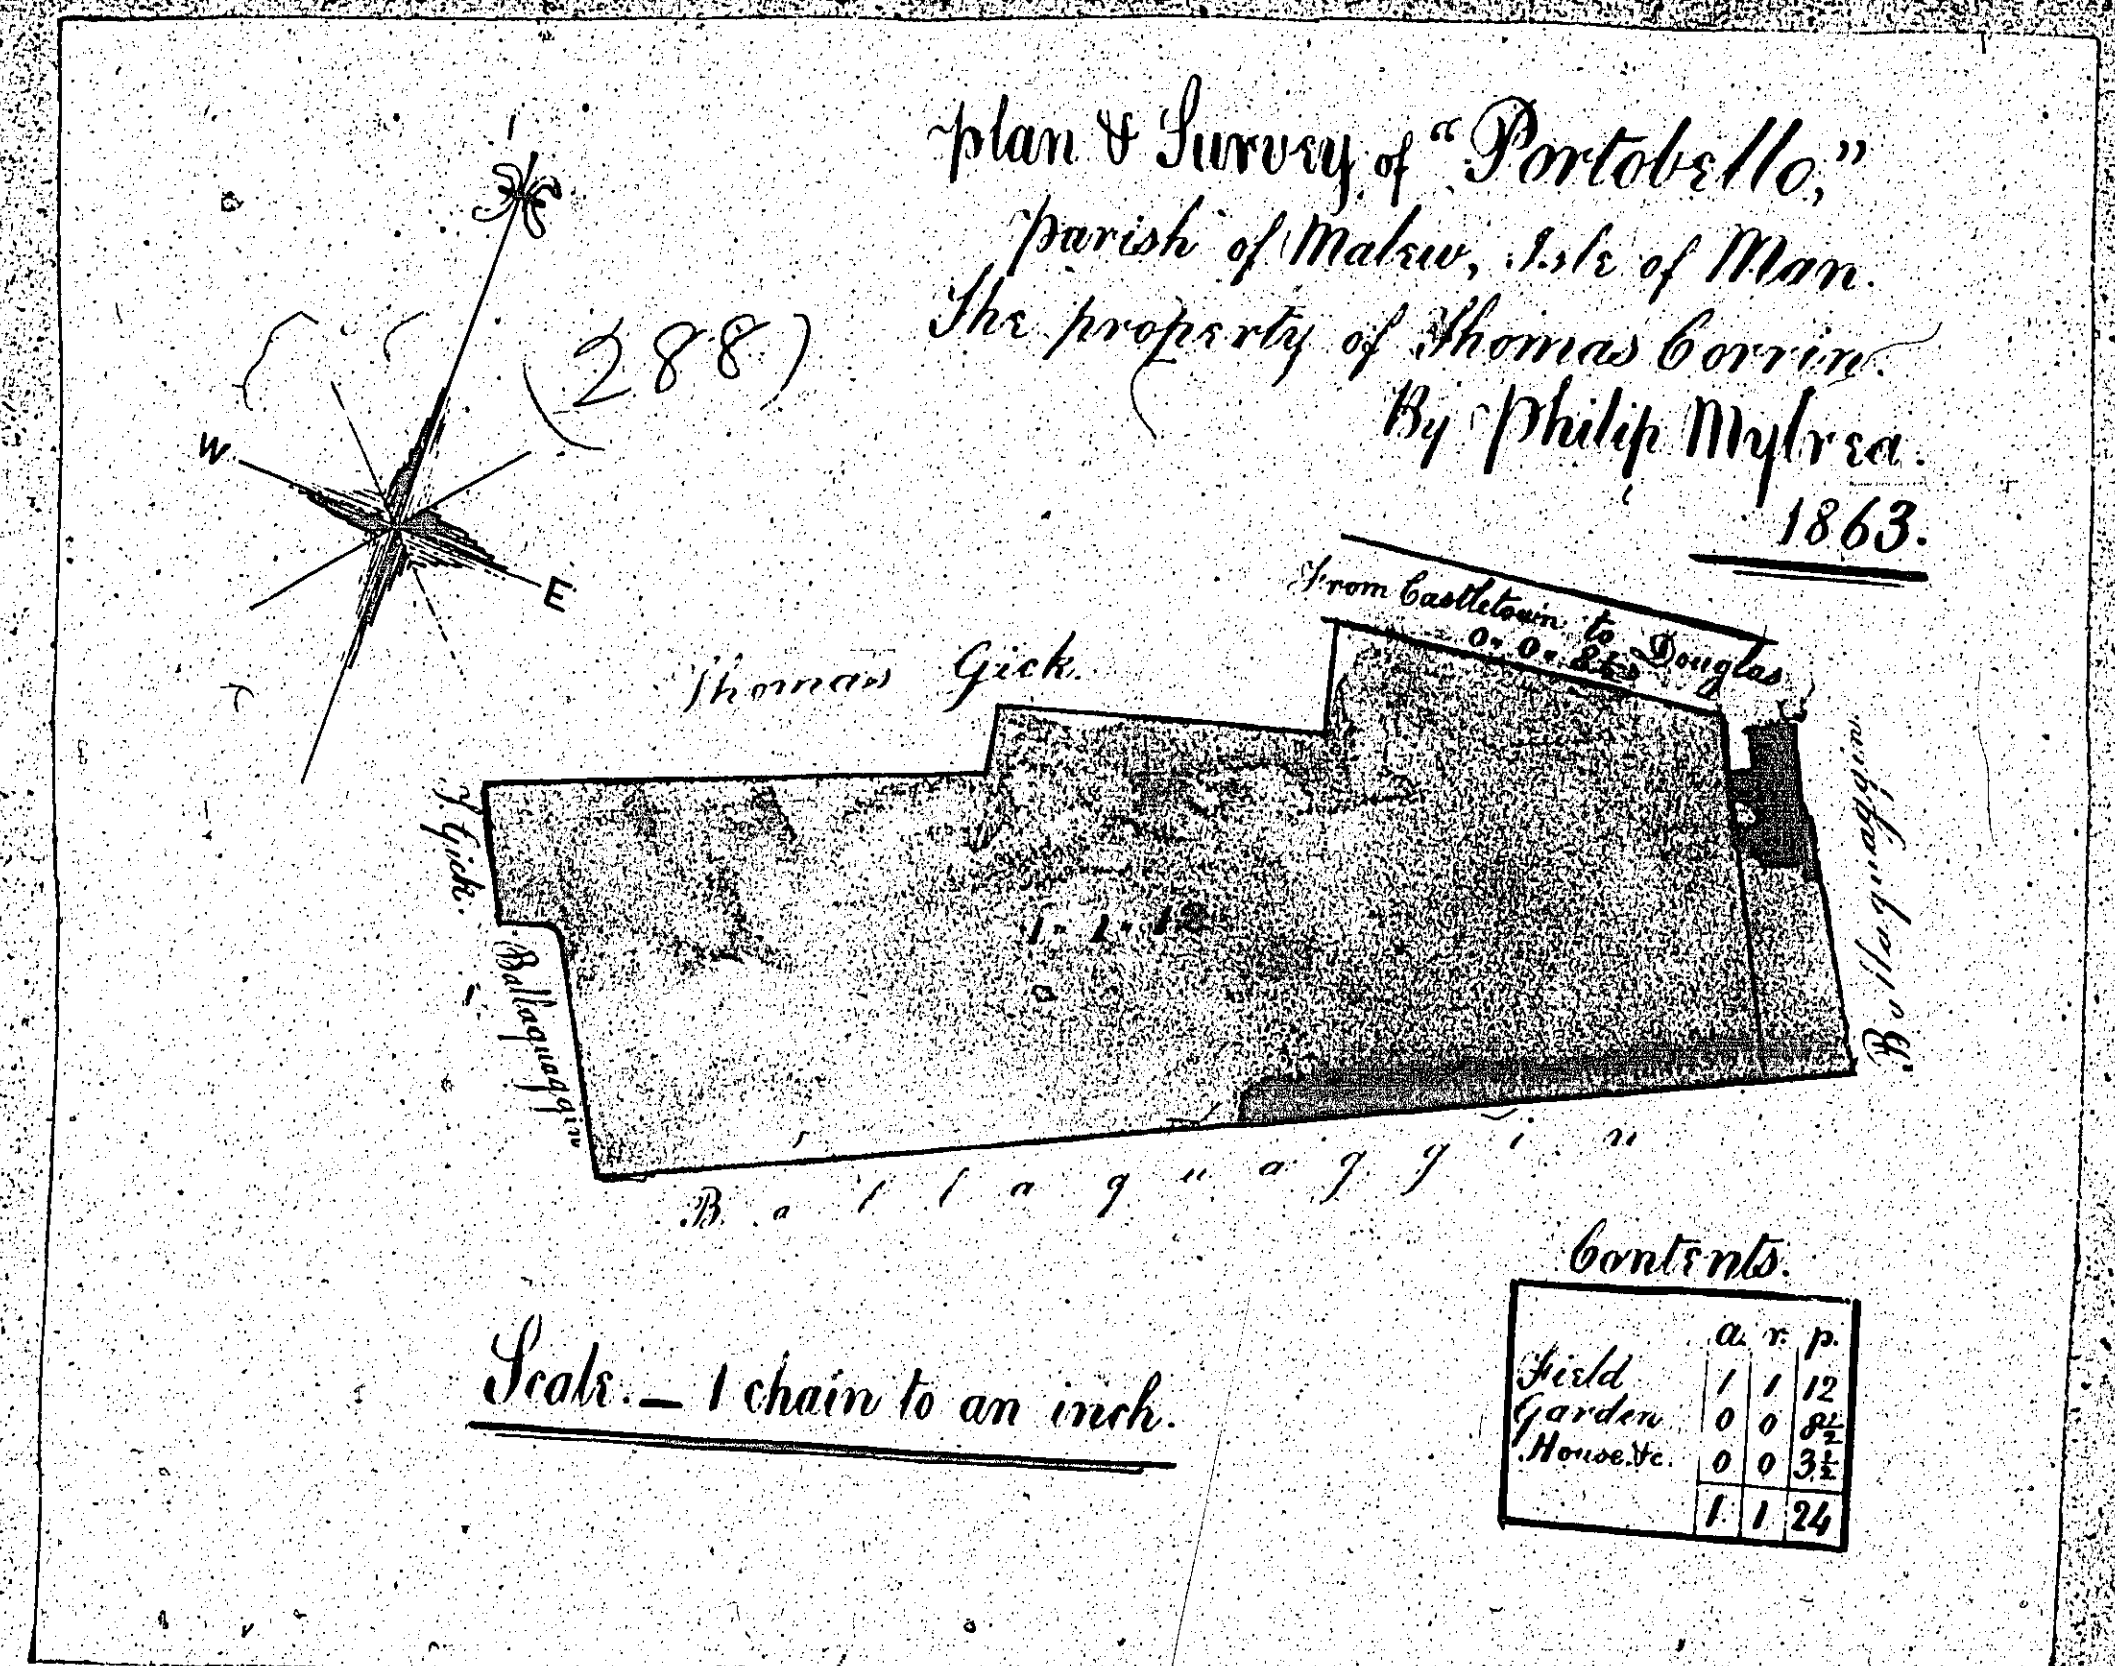 Plan & Survey of "Portobello,"
Parish of Malew, Isle of Man.
The property of Thomas Corrin.
By Philip Mylrea.
1863.
(288)
W.
E.
From Castletown to Douglas
0. 0. 8½
Thomas Gick.
T Gick.
Ballaquaggin
1. 1. 12
Ballaquaggin
Ballaquaggin
Scale. — 1 chain to an inch.
Contents.
a. r. p.
Field 1 1 12
Garden 0 0 8½
House &c. 0 0 3½
1 1 24